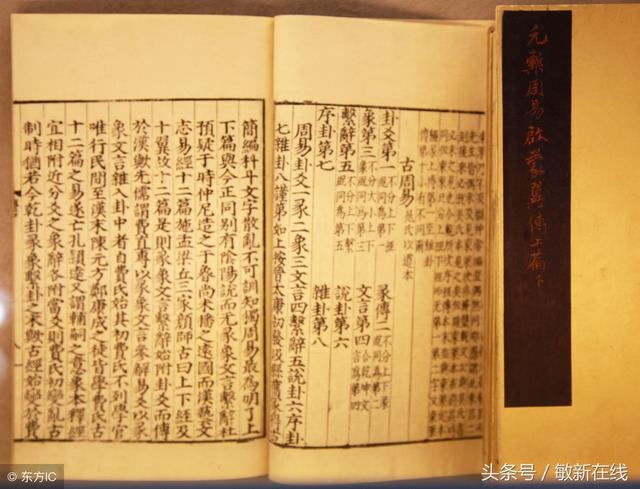 元槧周易啟蒙翼傳上篇下
古周易 晁氏以道本
卦爻第一 不分上下經
彖傳二 不分上下彖 呂同為第二
象第三 不分大小上下 呂同為第三
文言第四 合乾坤文言為第四
繫辭第五 不分上下繫 呂同為第五
說卦第六
序卦第七
雜卦第八
周易卦爻一彖二象三文言四繫辭五說卦六序卦
七雜卦八謹第如上按晉太康初發汲縣舊冢得古
簡編科斗文字散亂不可訓知獨周易最為明了上
下篇與今正同別有陰陽說而无彖象文言繫辭杜
預疑于時仲尼造之于魯尚未播之遠國而漢藝文
志易經十二篇施孟梁丘三家顏師古曰上下經及
十翼故十二篇是則彖象文言繫辭始附卦爻而傳
於漢歟先儒謂費直專以彖象文言參解易爻以彖
象文言雜入卦中者自費氏始其初費氏不列學官
唯行民間至漢末陳元方鄭康成之徒皆學費氏古
十二篇之易遂亡孔穎達又謂輔嗣之意象本釋經
宜相附近分爻之象辭各附當爻則費氏初變亂古
制時猶若今乾卦彖象繫卦之末歟古經始變於費
© 东方IC
头条号 / 敏新在线